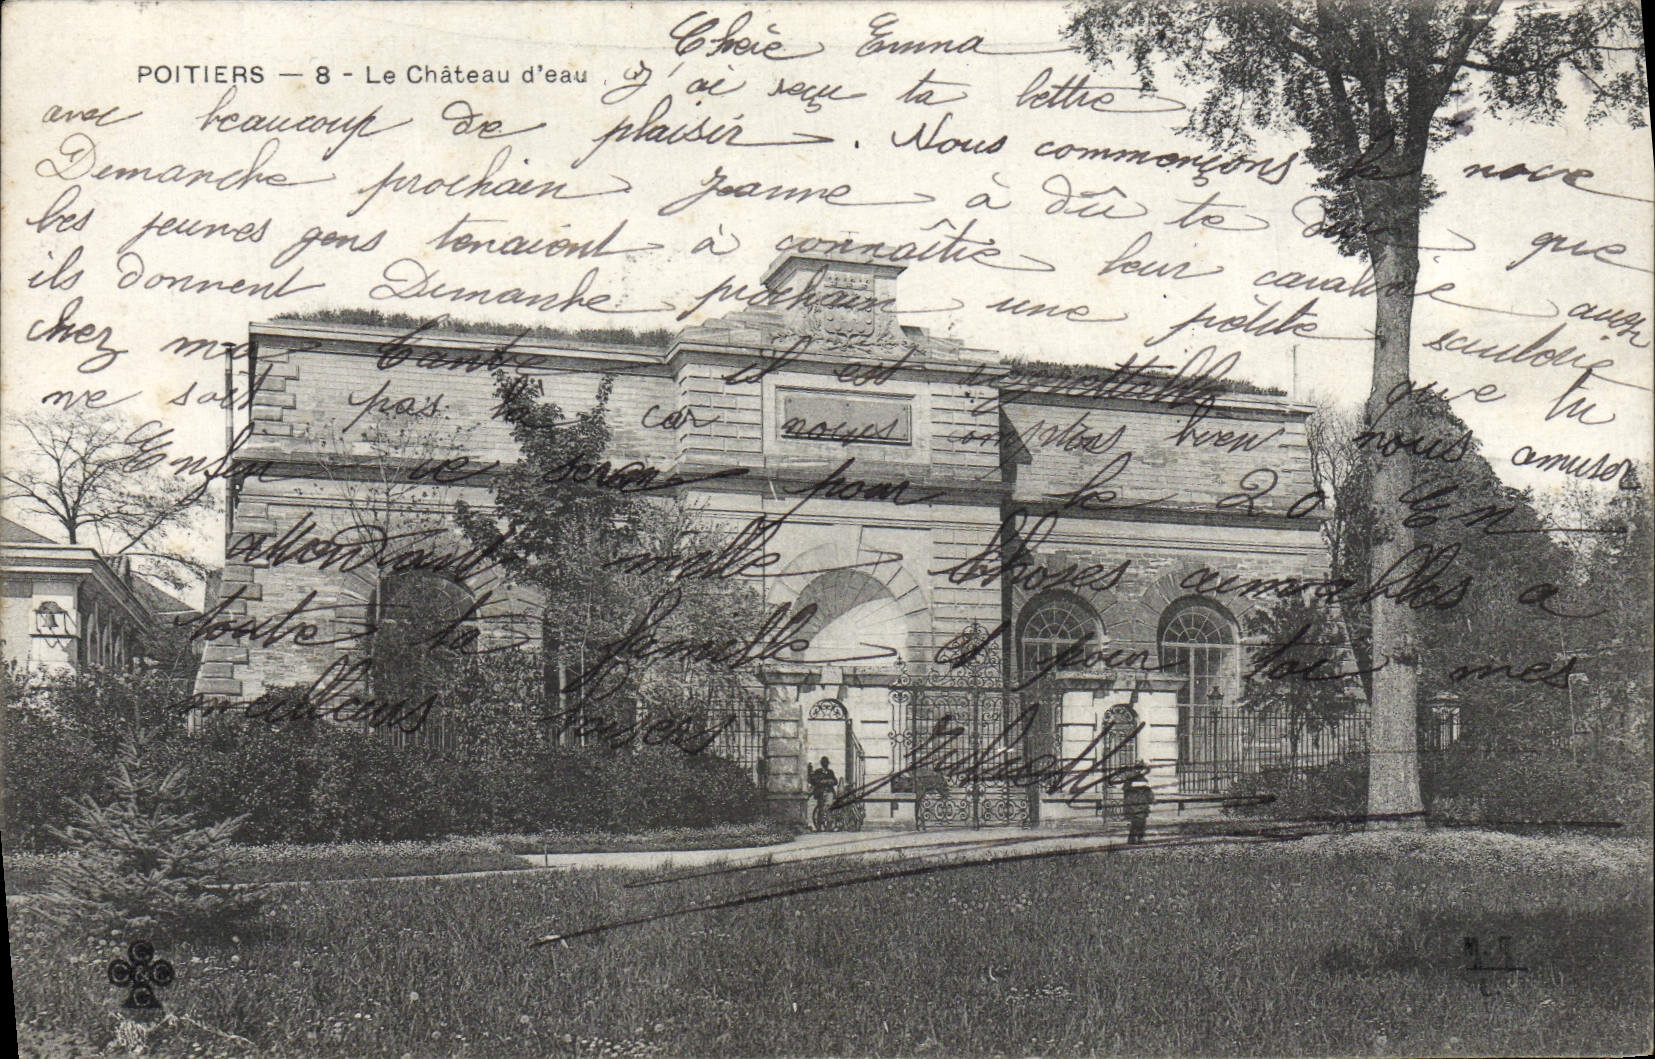 Chère Emma
POITIERS — 8 - Le Château d'eau
J'ai reçu ta lettre
avec beaucoup de plaisir. Nous commençons la noce
Dimanche prochain Jeanne à dû te dire que
les jeunes gens tenaient à connaître leur cavalière aussi
ils donnent Dimanche prochain une petite sauterie
chez ma tante il est regrettable que tu
ne soit pas là car nous comptons bien nous amuser
Enfin ce sera pour le 20 En
attendant mille choses aimables a
toute ta famille et pour toi mes
meilleurs baisers
Juliette
C C & C C
M.T.